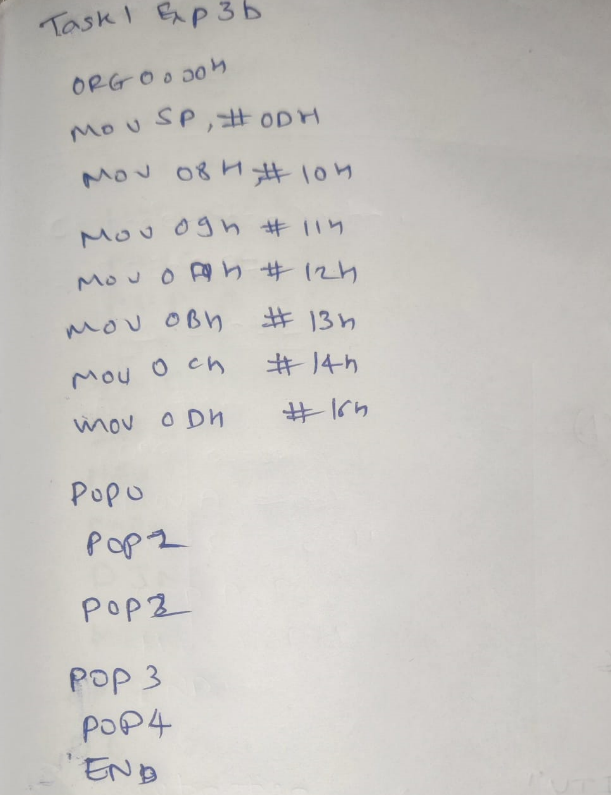 Task1 Exp3b
ORG 0000h
Mov SP, #0DH
Mov 08H, #10h
Mov 09h #11h
Mov 0Ah #12h
Mov 0Bh #13h
Mov 0ch #14h
mov 0Dh #15h
POP0
POP1
POP2
POP3
POP4
END